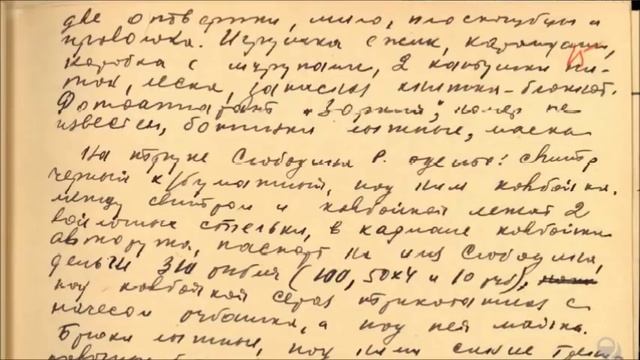 две отвертки, мыло, плоскогубцы и
проволока. Игрушка ежик, карандаши,
коробка с шурупами, 2 катушки ни-
ток, леска, записная книжка-блокнот.
Фотоаппарат "Зоркий", номер не
известен, ботинки лыжные, маска
На трупе Слободина Р. одето: свитр
черный х/бумажный, под ним ковбойка.
между свитром и ковбойкой лежат 2
войлочные стельки, в кармане ковбойки
авторучка, паспорт на имя Слободина,
деньги 310 рублей (100, 50х4 и 10 руб),
под ковбойкой серая трикотажная с
начесом рубашка, а под ней майка.
Брюки лыжные, под ними синие